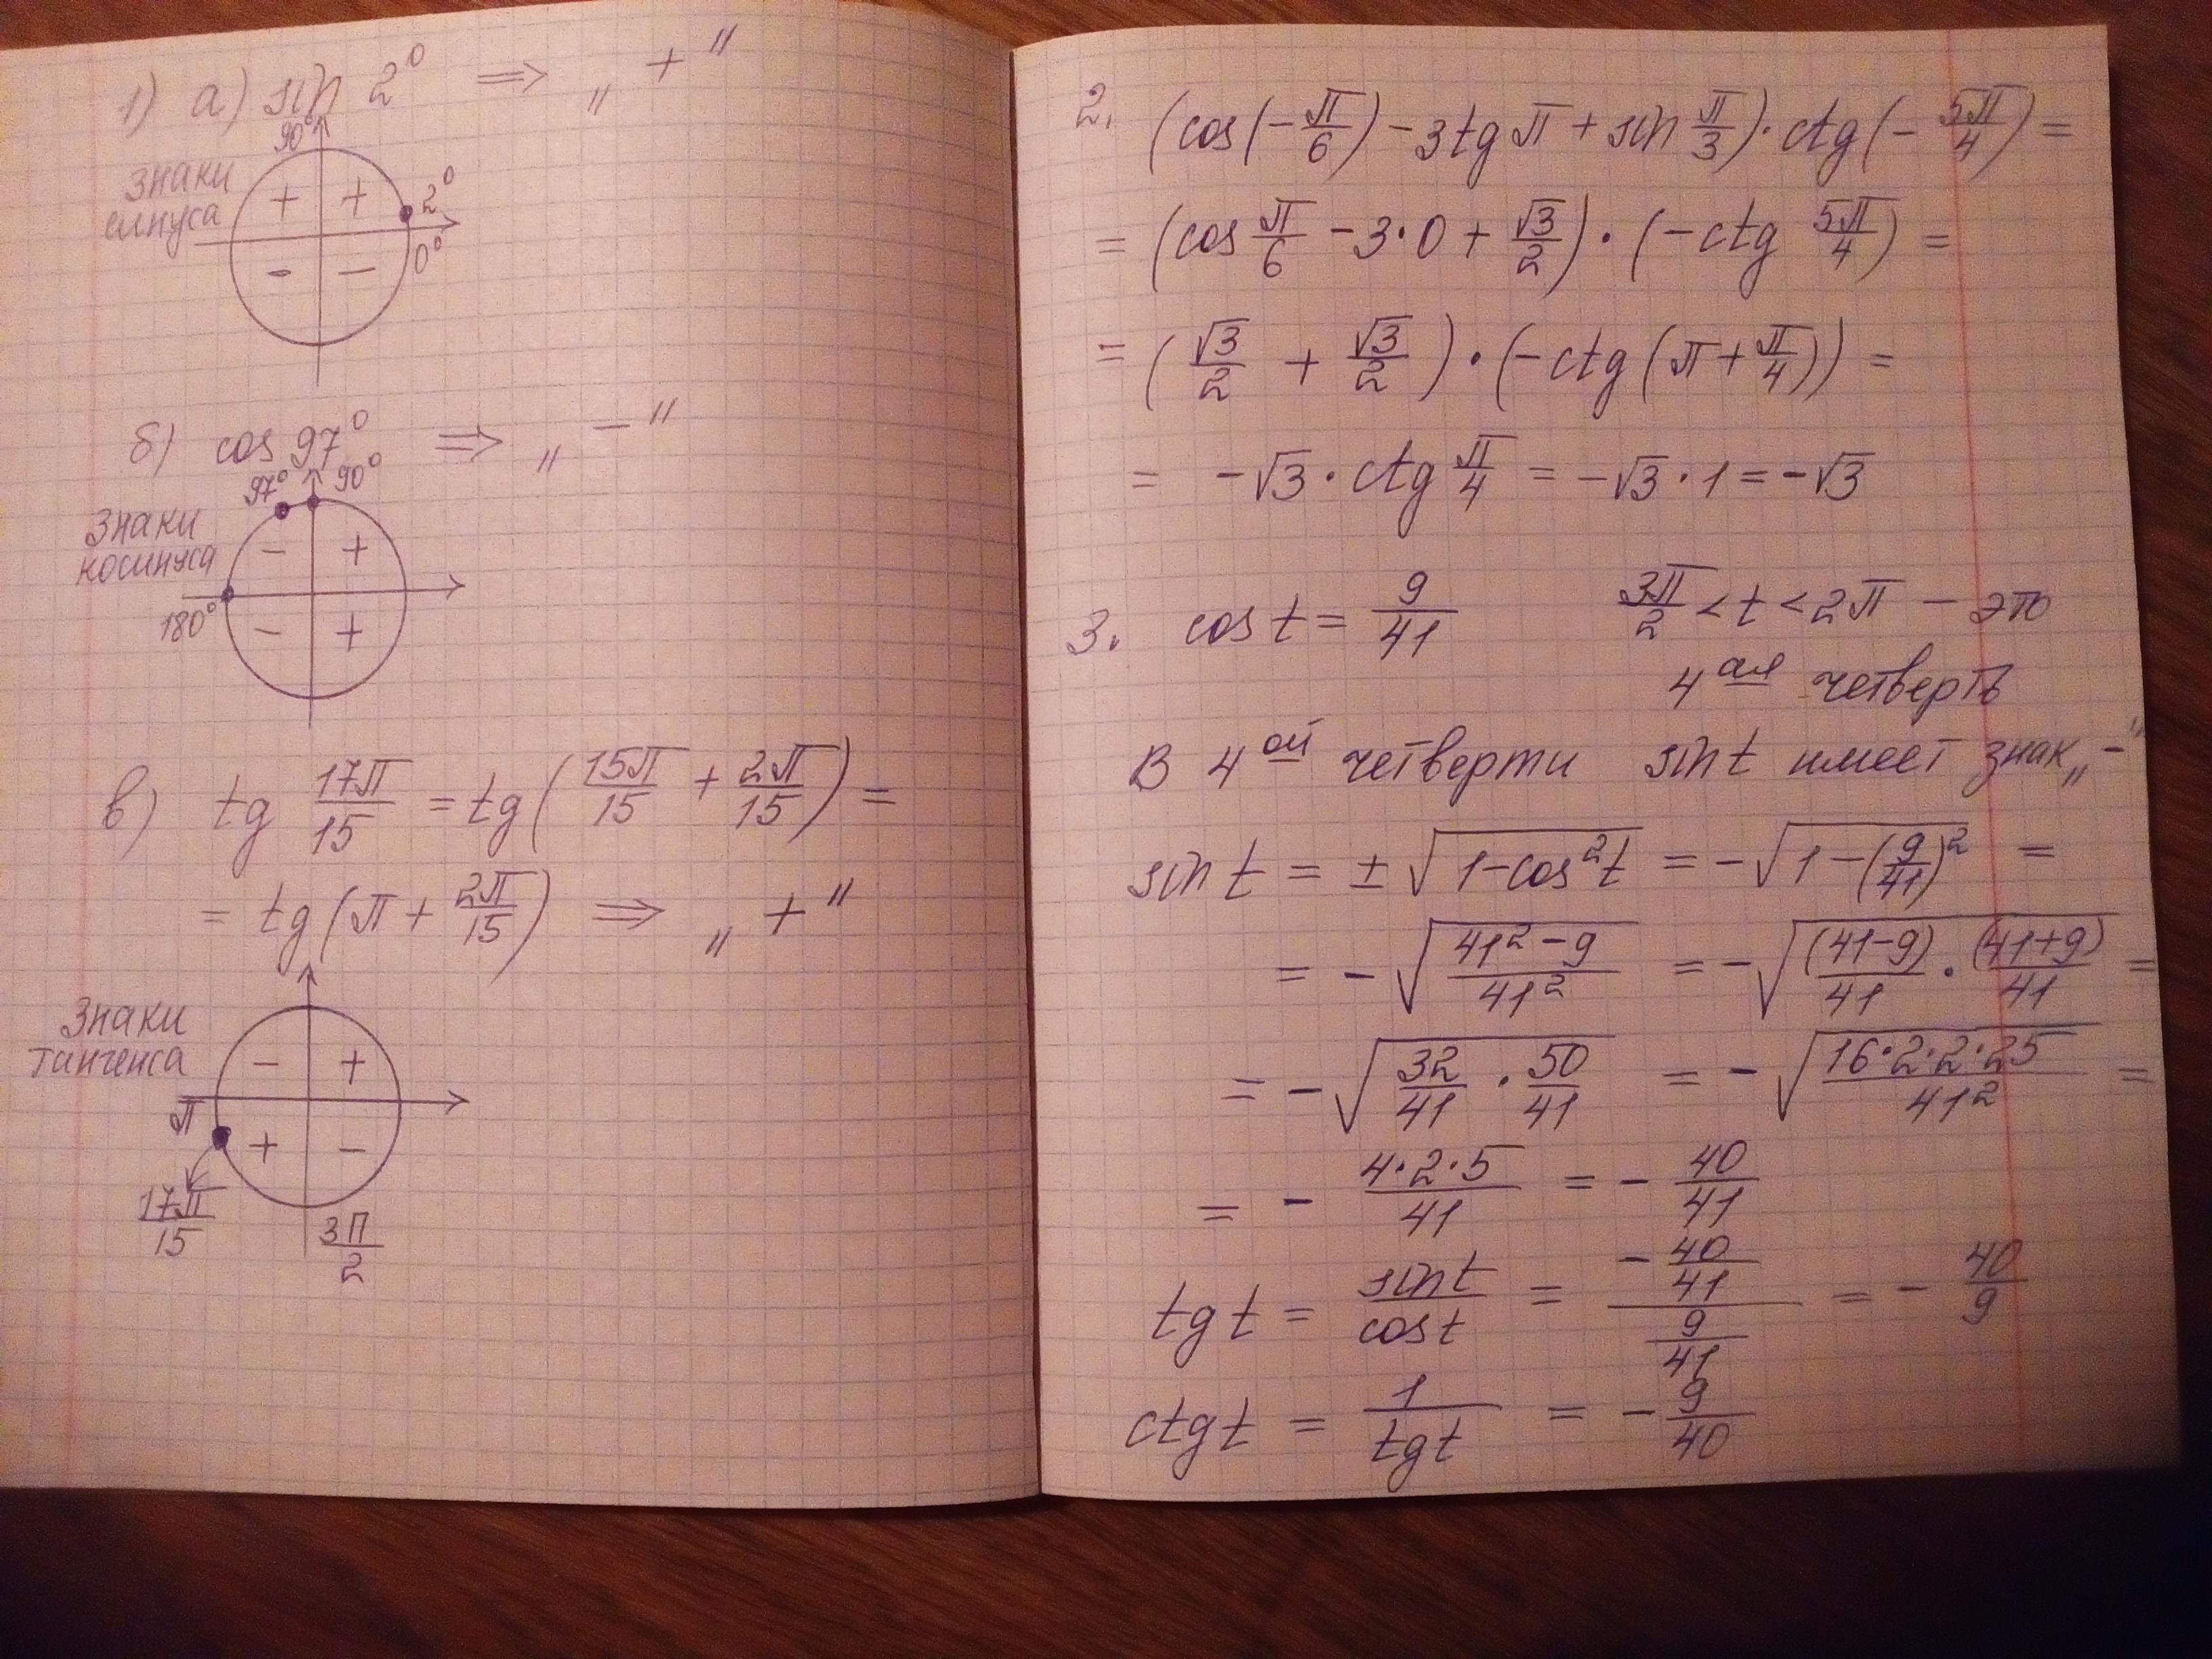 1) а) sin 2° ⇒ „ + "
90°
знаки
синуса
+ + 2°
- - 0°
б) cos 97° ⇒ „ - "
97° 90°
знаки
косинуса
- +
180° - +
в) tg 17π/15 = tg(15π/15 + 2π/15) =
= tg(π + 2π/15) ⇒ „ + "
знаки
тангенса
- +
π + -
17π/15 3π/2
2. (cos(-π/6) - 3tg π + sin π/3) · ctg(-5π/4) =
= (cos π/6 - 3·0 + √3/2) · (-ctg 5π/4) =
= (√3/2 + √3/2) · (-ctg(π + π/4)) =
= -√3 · ctg π/4 = -√3 · 1 = -√3
3. cos t = 9/41 3π/2 < t < 2π - это
4ая четверть
В 4ой четверти sin t имеет знак „-"
sin t = ±√(1-cos²t) = -√(1-(9/41)²) =
= -√((41²-9)/41²) = -√((41-9)/41 · (41+9)/41) =
= -√(32/41 · 50/41) = -√((16·2·2·25)/41²) =
= - (4·2·5)/41 = - 40/41
tg t = sin t/cos t = (-40/41)/(9/41) = - 40/9
ctg t = 1/tg t = - 9/40